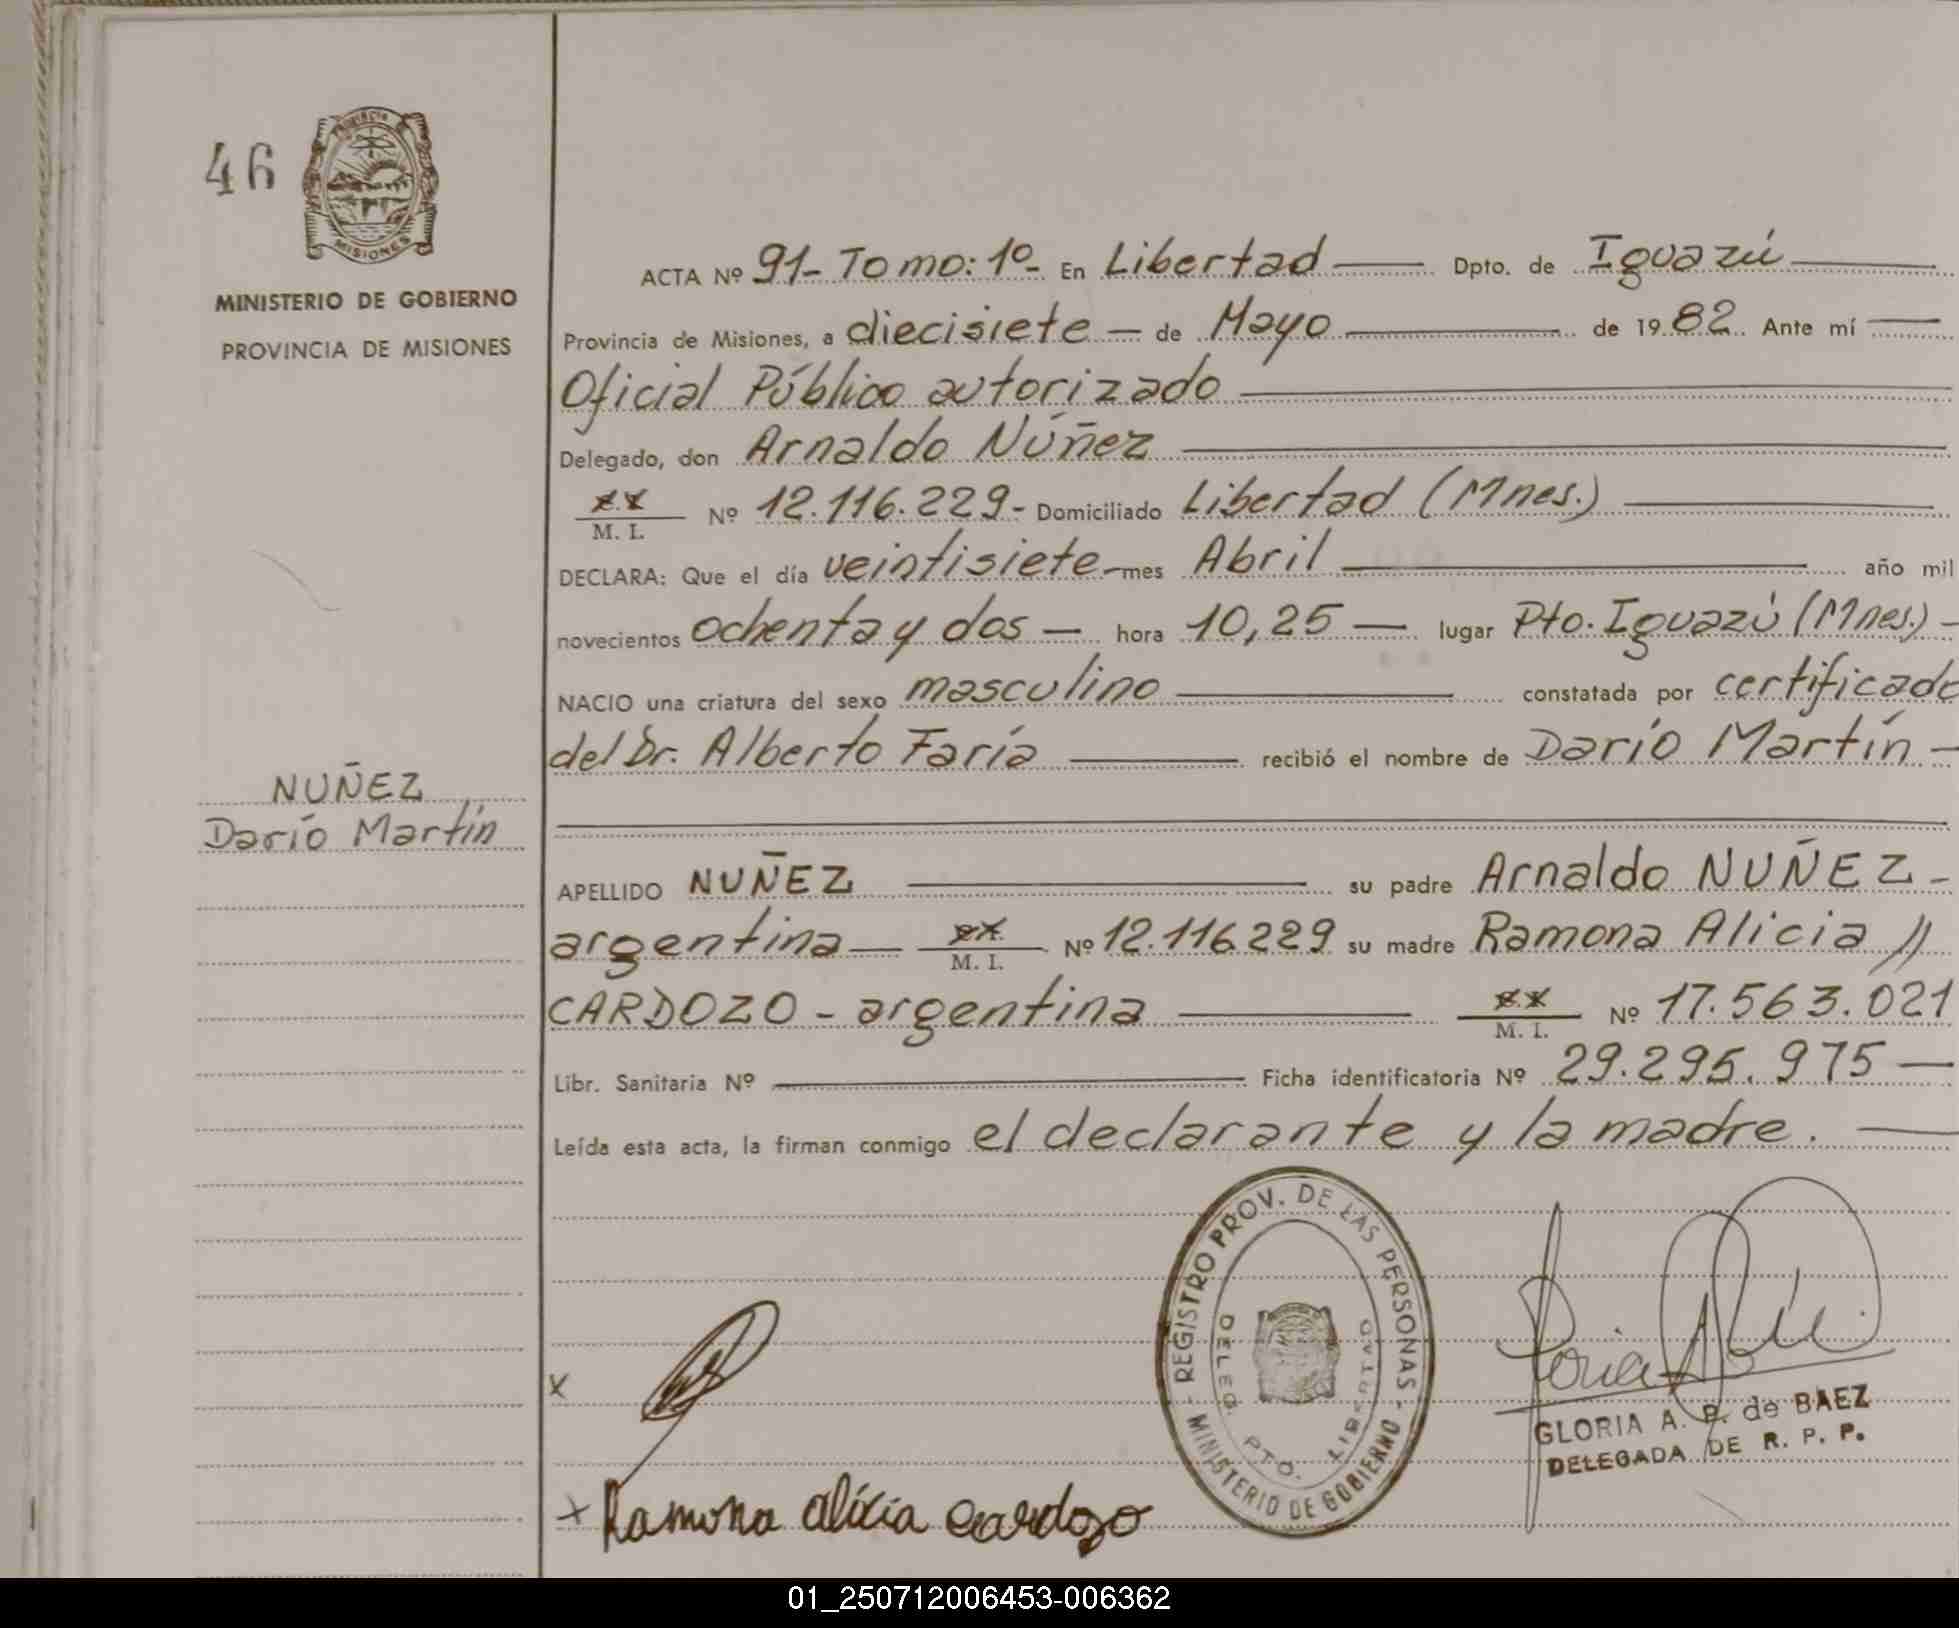 46
PROVINCIA DE
MISIONES
MINISTERIO DE GOBIERNO
PROVINCIA DE MISIONES
NUÑEZ
Darío Martín
ACTA Nº 91- Tomo: 1º- En Libertad Dpto. de Iguazú
Provincia de Misiones, a diecisiete de Mayo de 1982 Ante mí
Oficial Público autorizado
Delegado, don Arnaldo Núñez
M. I. Nº 12.116.229- Domiciliado Libertad (Mnes.)
DECLARA: Que el día veintisiete mes Abril año mil
novecientos ochenta y dos hora 10,25 lugar Pto. Iguazú (Mnes.)
NACIO una criatura del sexo masculino constatada por certificado
del Dr. Alberto Faría recibió el nombre de Darío Martín
APELLIDO NUÑEZ su padre Arnaldo NUÑEZ-
argentina M. I. Nº 12.116.229 su madre Ramona Alicia //
CARDOZO - argentina M. I. Nº 17.563.021
Libr. Sanitaria Nº Ficha identificatoria Nº 29.295.975
Leída esta acta, la firman conmigo el declarante y la madre.
REGISTRO PROV. DE LAS PERSONAS - MINISTERIO DE GOBIERNO -
DELEG. PTO. LIBERTAD
GLORIA A. P. de BAEZ
DELEGADA DE R. P. P.
x
x Ramona alicia cardozo
01_250712006453-006362